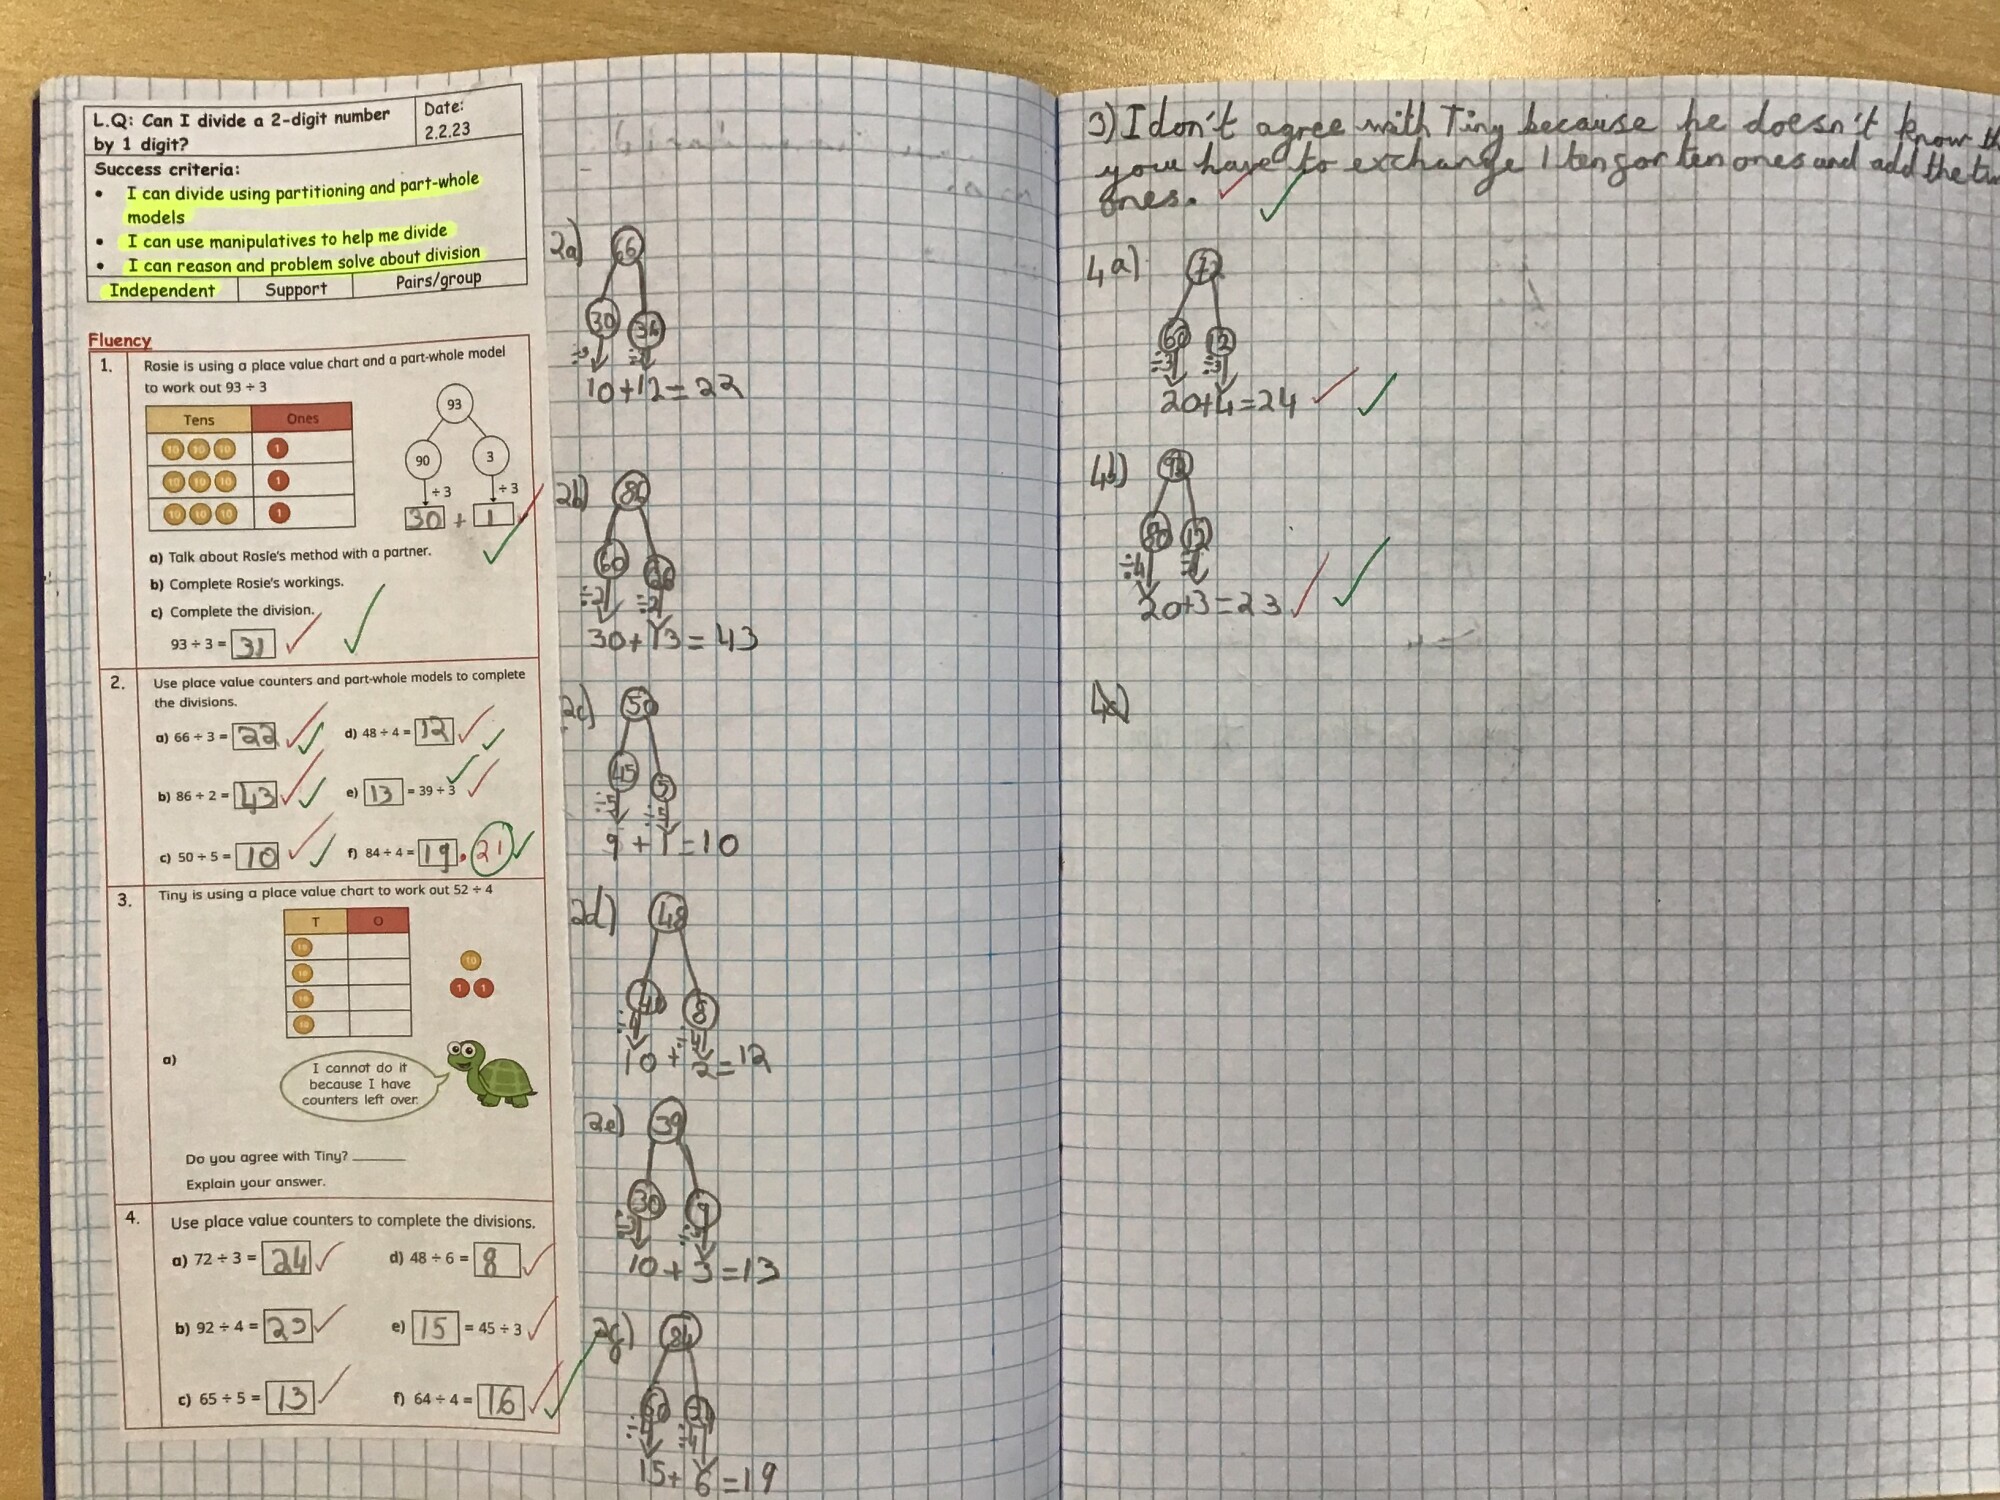 L.Q: Can I divide a 2-digit number
by 1 digit?
Date:
2.2.23
Success criteria:
• I can divide using partitioning and part-whole
models
• I can use manipulatives to help me divide
• I can reason and problem solve about division
Independent Support Pairs/group
Fluency
1. Rosie is using a place value chart and a part-whole model
to work out 93 ÷ 3
Tens Ones
10 10 10 1
10 10 10 1
10 10 10 1
93
90 3
÷ 3 ÷ 3
30 + 1
a) Talk about Rosie's method with a partner.
b) Complete Rosie's workings.
c) Complete the division.
93 ÷ 3 = 31
2. Use place value counters and part-whole models to complete
the divisions.
a) 66 ÷ 3 = 22 d) 48 ÷ 4 = 12
b) 86 ÷ 2 = 43 e) 13 = 39 ÷ 3
c) 50 ÷ 5 = 10 f) 84 ÷ 4 = 19 . 21
3. Tiny is using a place value chart to work out 52 ÷ 4
T O
10
10
10
10
10
1 1
a)
I cannot do it
because I have
counters left over.
Do you agree with Tiny? ______
Explain your answer.
4. Use place value counters to complete the divisions.
a) 72 ÷ 3 = 24 d) 48 ÷ 6 = 8
b) 92 ÷ 4 = 23 e) 15 = 45 ÷ 3
c) 65 ÷ 5 = 13 f) 64 ÷ 4 = 16
2a) 66
30 36
÷3 ÷3
10+12=22
2b) 86
60 26
÷2 ÷2
30+13=43
2c) 50
45 5
÷5 ÷5
9+1=10
2d) 48
40 8
÷4 ÷4
10+2=12
2e) 39
30 9
÷3 ÷3
10+3=13
2f) 84
60 24
÷4 ÷4
15+6=19
3) I don't agree with Tiny because he doesn't know
you have to exchange 1 ten for ten ones and add the
ones.
4a) 72
60 12
÷3 ÷3
20+4=24
4b) 92
80 12
÷4 ÷4
20+3=23